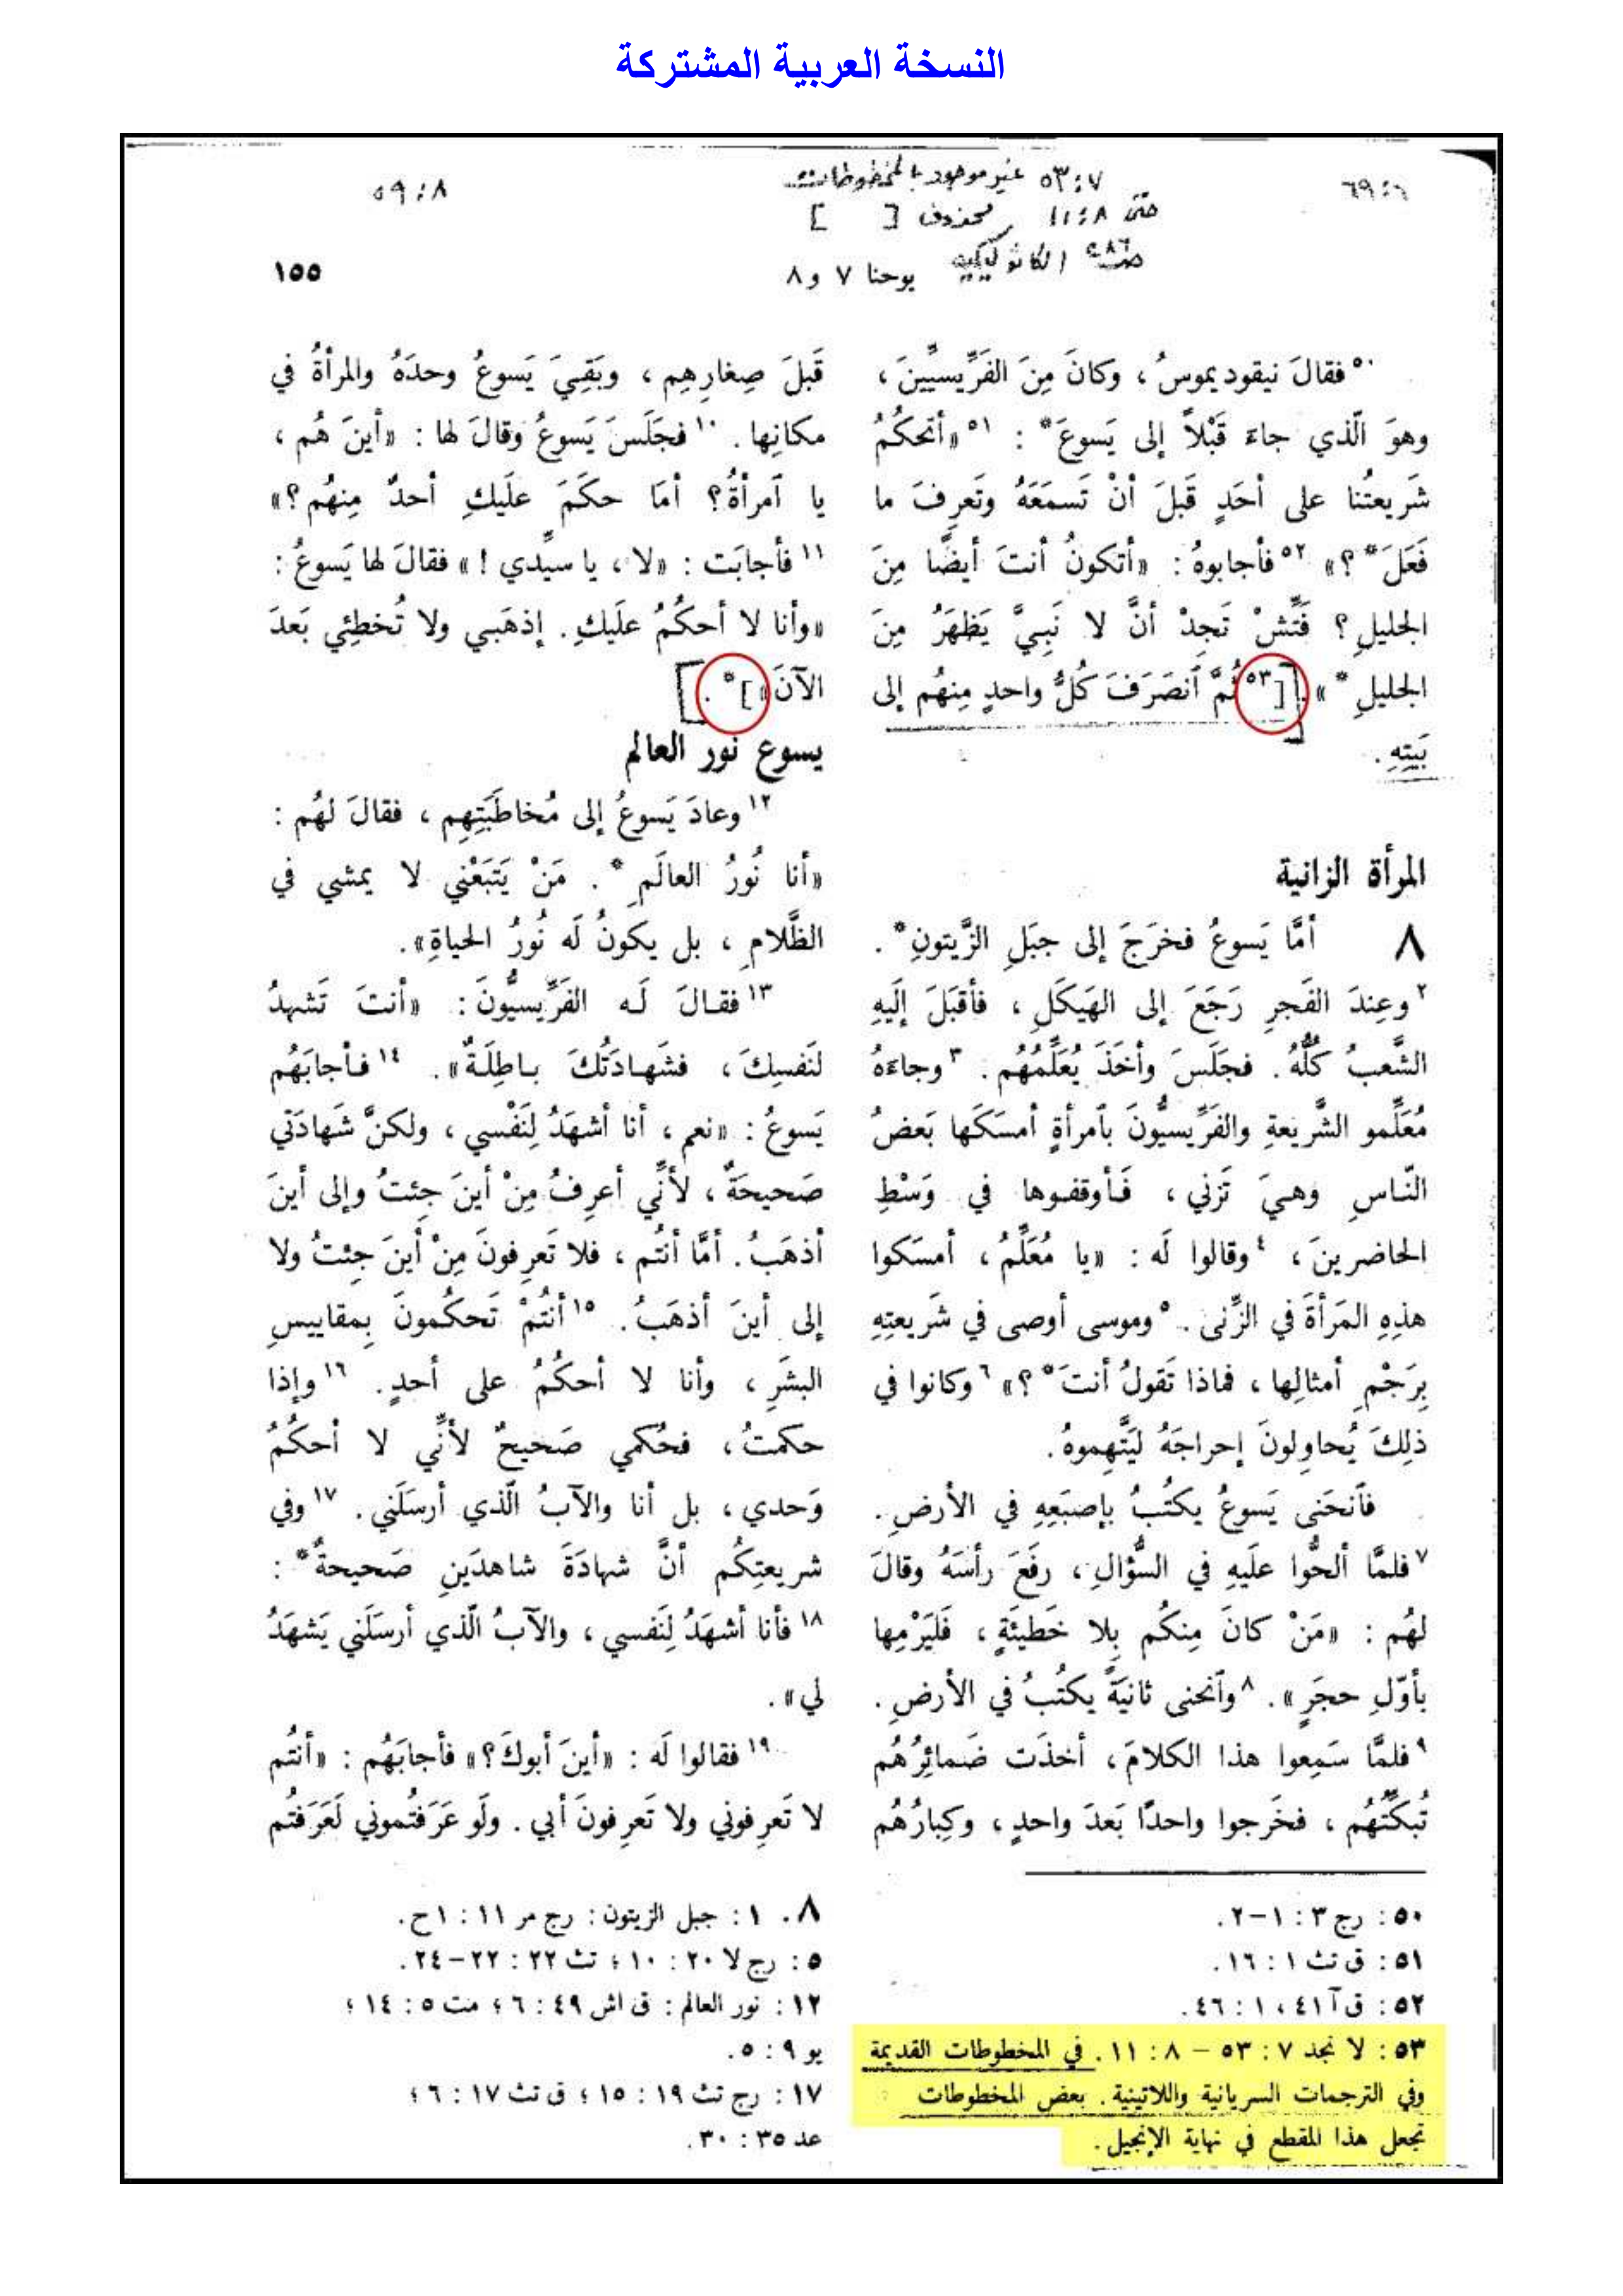 النسخة العربية المشتركة
٨ : ٥٩
٧ : ٥٣ غير موجود بالمخطوطات
٦ : ٦٩
حتى ٨ : ١١ محذوف [ ]
الكاثوليكية
يوحنا ٧ و٨
١٥٥
٥٠ فقالَ نيقوديموسُ ، وكانَ مِنَ الفَرِّيسيِّينَ ،
وهوَ الّذي جاءَ قَبْلاً إلى يَسوعَ* : ٥١ «أتحكُمُ
شَريعتُنا على أحَدٍ قَبلَ أنْ تَسمَعَهُ وتَعرِفَ ما
فَعَلَ*؟» ٥٢ فأجابوهُ : «أتكونُ أنتَ أيضًا مِنَ
الجليلِ ؟ فَتِّشْ تَجِدْ أنَّ لا نَبِيَّ يَظهَرُ مِنَ
الجليلِ*» . [ ٥٣ ثُمَّ ٱنصَرَفَ كُلُّ واحدٍ مِنهُم إلى
بَيتِهِ .
المرأة الزانية
٨ أمَّا يَسوعُ فخرَجَ إلى جبَلِ الزَّيتونِ* .
٢ وعِندَ الفَجرِ رَجَعَ إلى الهَيكَلِ ، فأقبَلَ إلَيهِ
الشَّعبُ كُلُّهُ . فجَلَسَ وأخَذَ يُعَلِّمُهُم . ٣ وجاءَهُ
مُعَلِّمو الشَّريعةِ والفَرِّيسيُّونَ بٱمرأةٍ أمسَكَها بَعضُ
النّاسِ وهيَ تَزني ، فَأوقفوها في وَسْطِ
الحاضرينَ ، ٤ وقالوا لَه : «يا مُعَلِّمُ ، أمسَكوا
هذِهِ المَرأةَ في الزِّنى . ٥ وموسى أوصى في شَريعتِهِ
بِرَجْمِ أمثالِها ، فماذا تَقولُ أنتَ*؟» ٦ وكانوا في
ذلِكَ يُحاوِلونَ إحراجَهُ ليَتَّهِموهُ .
فٱنحَنى يَسوعُ يكتُبُ بإصبَعِهِ في الأرضِ .
٧ فلمَّا ألحُّوا علَيهِ في السُّؤالِ ، رفَعَ رأسَهُ وقالَ
لهُم : «مَنْ كانَ مِنكُم بِلا خَطيئَةٍ ، فَليَرْمِها
بأوّلِ حجَرٍ» . ٨ وٱنحنى ثانيَةً يكتُبُ في الأرضِ .
٩ فلمَّا سَمِعوا هذا الكلامَ ، أخذَت ضَمائِرُهُم
تُبَكِّتُهُم ، فخَرجوا واحدًا بَعدَ واحدٍ ، وكِبارُهُم
قَبلَ صِغارِهِم ، وبَقِيَ يَسوعُ وحدَهُ والمرأةُ في
مكانِها . ١٠ فجَلَسَ يَسوعُ وقالَ لها : «أينَ هُم ،
يا ٱمرأةُ؟ أمَا حكَمَ علَيكِ أحدٌ مِنهُم؟»
١١ فأجابَت : «لا ، يا سيِّدي !» فقالَ لها يَسوعُ :
«وأنا لا أحكُمُ علَيكِ . إذهَبي ولا تُخطِئي بَعدَ
الآنَ» ] * .
يسوع نور العالم
١٢ وعادَ يَسوعُ إلى مُخاطَبَتِهِم ، فقالَ لهُم :
«أنا نُورُ العالَمِ* . مَنْ يَتبَعْني لا يمشي في
الظَّلامِ ، بل يكونُ لَه نُورُ الحياةِ» .
١٣ فقالَ لَه الفَرِّيسيُّونَ : «أنتَ تَشهدُ
لنَفسِكَ ، فشَهادَتُكَ باطِلَةٌ» . ١٤ فأجابَهُم
يَسوعُ : «نعم ، أنا أشهَدُ لِنَفْسي ، ولكنَّ شَهادَتي
صَحيحَةٌ ، لأنِّي أعرِفُ مِنْ أينَ جِئتُ وإلى أينَ
أذهَبُ . أمَّا أنتُم ، فلا تَعرِفونَ مِنْ أينَ جِئتُ ولا
إلى أينَ أذهَبُ . ١٥ أنتُمْ تَحكُمونَ بِمقاييسِ
البشَرِ ، وأنا لا أحكُمُ على أحدٍ . ١٦ وإذا
حكمتُ ، فحُكمي صَحيحٌ لأنِّي لا أحكُمُ
وَحدي ، بل أنا والآبُ الّذي أرسَلَني . ١٧ وفي
شريعتِكُم أنَّ شهادَةَ شاهدَينِ صَحيحةٌ* :
١٨ فأنا أشهَدُ لِنَفسي ، والآبُ الّذي أرسَلَني يَشهَدُ
لي» .
١٩ فقالوا لَه : «أينَ أبوكَ؟» فأجابَهُم : «أنتُم
لا تَعرِفوني ولا تَعرِفونَ أبي . ولَو عَرَفتُموني لَعَرَفتُم
٥٠ : رج ٣ : ١-٢ .
٥١ : ق تث ١ : ١٦ .
٥٢ : ق آ ٤١ ، ١ : ٤٦ .
٥٣ : لا نجد ٧ : ٥٣ – ٨ : ١١ . في المخطوطات القديمة
وفي الترجمات السريانية واللاتينية . بعض المخطوطات
تجعل هذا المقطع في نهاية الإنجيل .
٨ . ١ : جبل الزيتون : رج مر ١١ : ١ح .
٥ : رج لا ٢٠ : ١٠ ؛ تث ٢٢ : ٢٢-٢٤ .
١٢ : نور العالم : ق اش ٤٩ : ٦ ؛ مت ٥ : ١٤ ؛
يو ٩ : ٥ .
١٧ : رج تث ١٩ : ١٥ ؛ ق تث ١٧ : ٦ ؛
عد ٣٥ : ٣٠ .